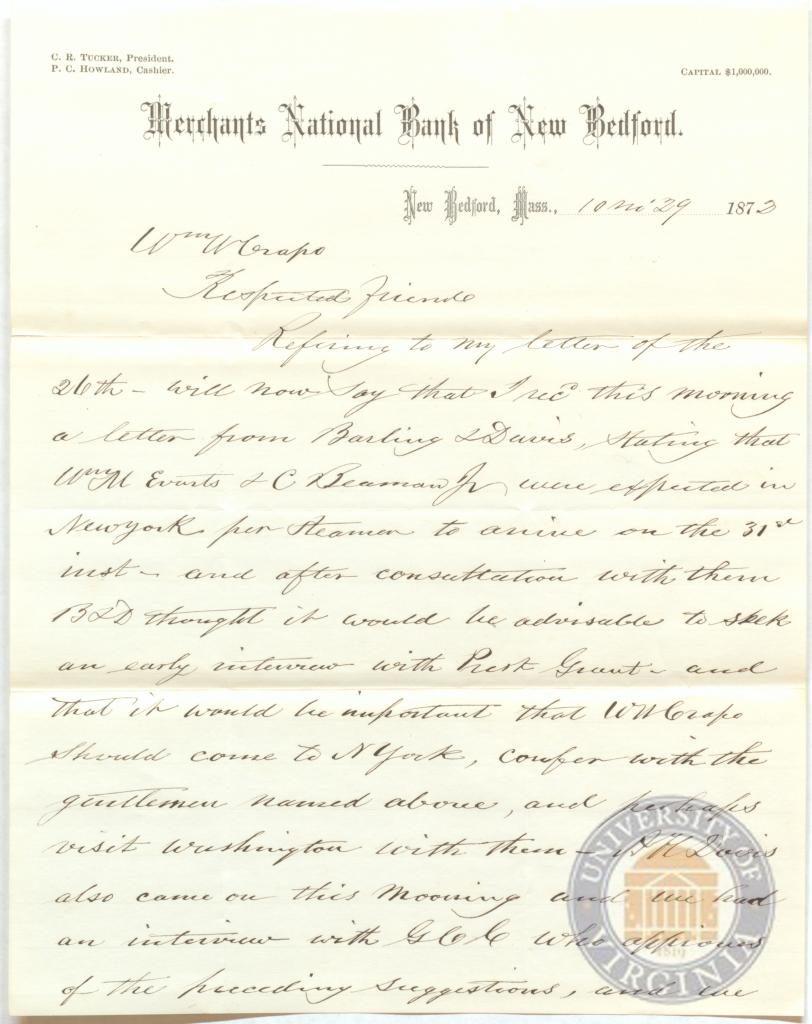 C. R. TUCKER, President.
P. C. HOWLAND, Cashier.
CAPITAL $1,000,000.
Merchants National Bank of New Bedford.
New Bedford, Mass., 10 mo 29 1872
Wm W Crapo
Respected friend
Refering to my letter of the
26th - will now say that I recd this morning
a letter from Barling & Davis, stating that
Wm M Evarts & C Beaman Jr were expected in
New york per steamer to arrive on the 31st
inst - and after consultation with them
B&D thought it would be advisable to seek
an early interview with Prest Grant - and
that it would be important that WW Crapo
should come to N York, confer with the
gentlemen named above, and perhaps
visit Washington with them - Davis
also came on this morning and we had
an interview with who approves
of the preceding suggestions, and we
UNIVERSITY OF VIRGINIA
1819